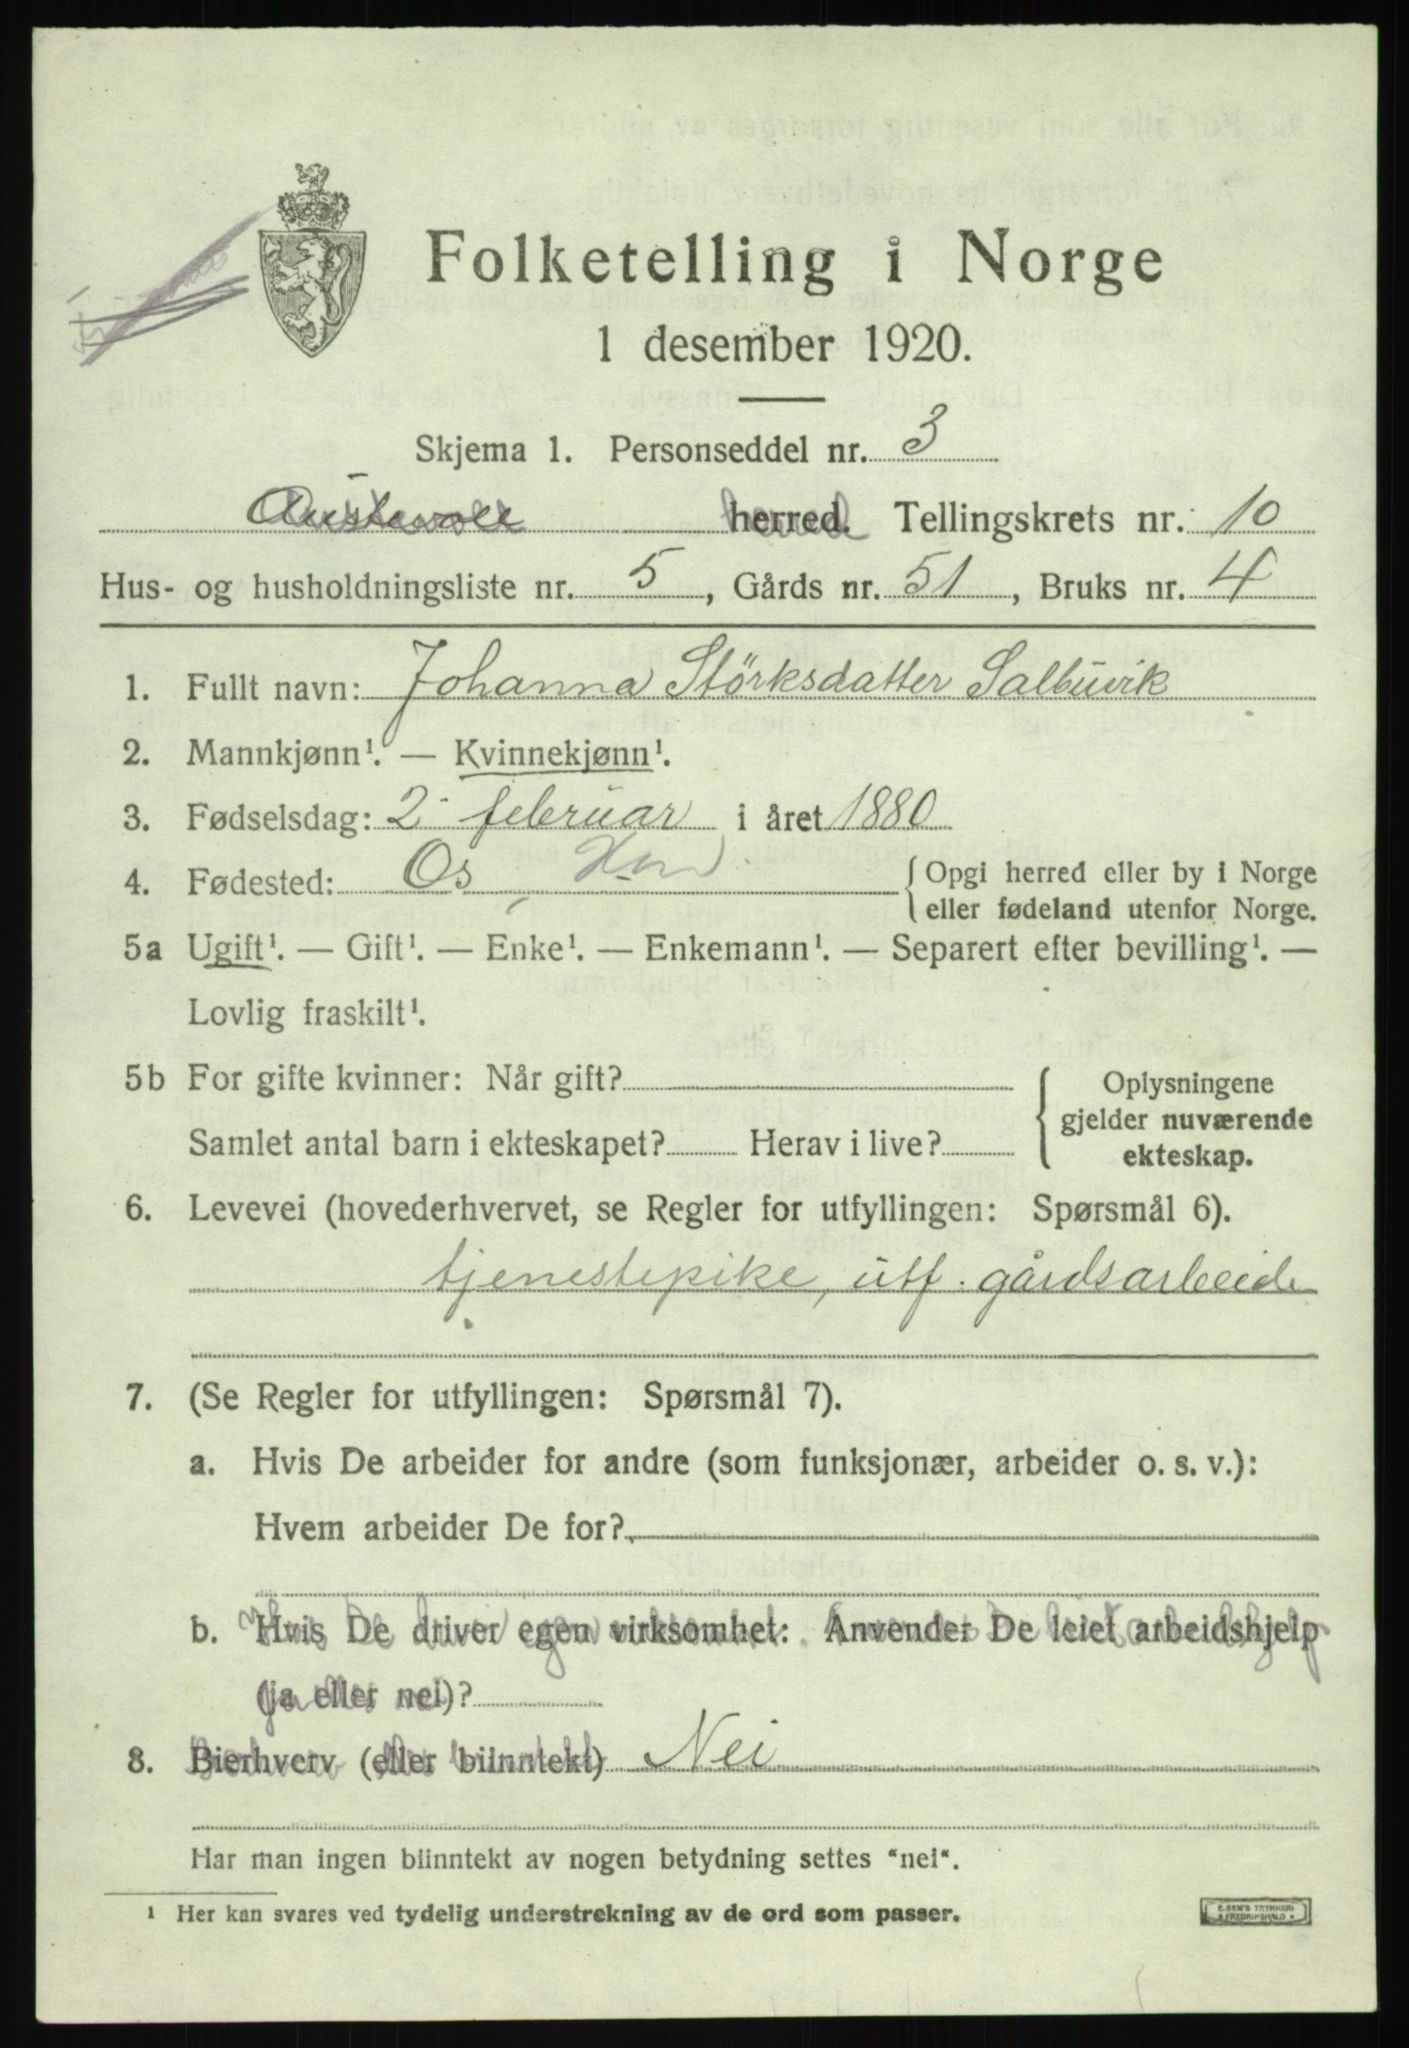 Folketelling i Norge
1 desember 1920.
Skjema 1. Personseddel nr. 3
Austevoll herred. Tellingskrets nr. 10
Hus- og husholdningsliste nr. 5, Gårds nr. 51, Bruks nr. 4
1. Fullt navn: Johanna Störksdatter Salbuvik
2. Mannkjønn¹. — Kvinnekjønn¹.
3. Fødselsdag: 2 februar i året 1880
4. Fødested: Os, Hord. { Opgi herred eller by i Norge
eller fødeland utenfor Norge.
5a Ugift¹. — Gift¹. — Enke¹. — Enkemann¹. — Separert efter bevilling¹. —
Lovlig fraskilt¹.
5b For gifte kvinner: Når gift? { Oplysningene
gjelder nuværende
Samlet antal barn i ekteskapet? Herav i live? ekteskap.
6. Levevei (hovederhvervet, se Regler for utfyllingen: Spørsmål 6).
tjenestepike, utf. gårdsarbeide
7. (Se Regler for utfyllingen: Spørsmål 7).
a. Hvis De arbeider for andre (som funksjonær, arbeider o. s. v.):
Hvem arbeider De for?
b. Hvis De driver egen virksomhet: Anvender De leiet arbeidshjelp
(ja eller nei)?
8. Bierhverv (eller biinntekt) Nei
Har man ingen biinntekt av nogen betydning settes "nei".
¹ Her kan svares ved tydelig understrekning av de ord som passer.